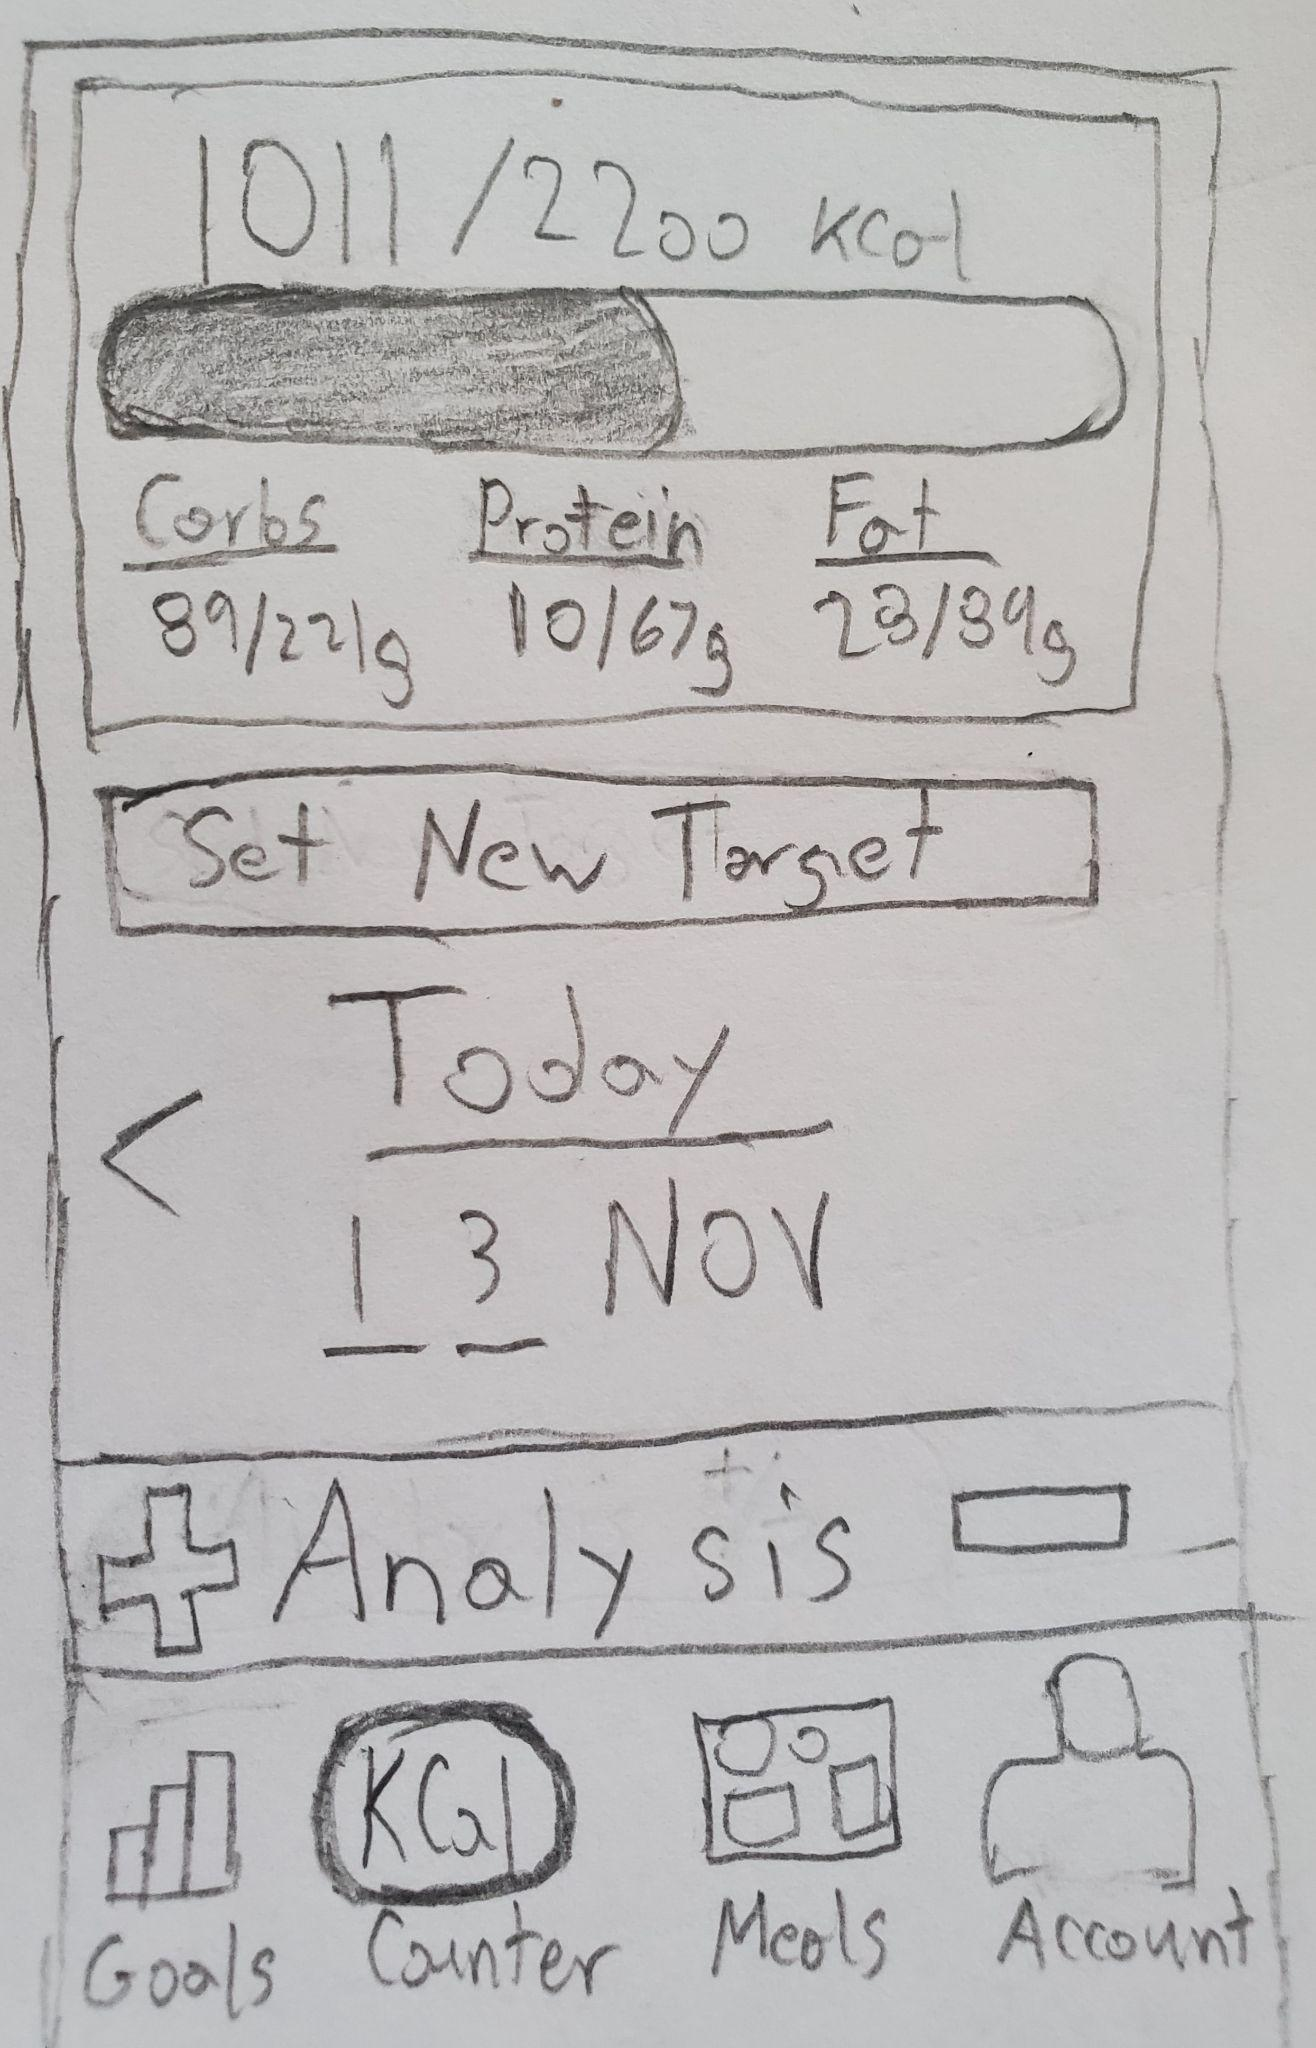 1011/2200 Kcal
Carbs Protein Fat
89/221g 10/67g 23/39g
Set New Target
Today
<
13 NOV
Analysis
KCal
Goals Counter Meals Account